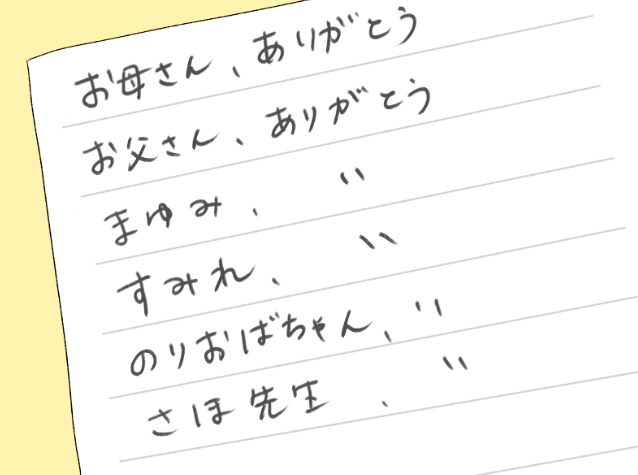 お母さん、ありがとう
お父さん、ありがとう
まゆみ、 〃
すみれ、 〃
のりおばちゃん、〃
さほ先生 、 〃